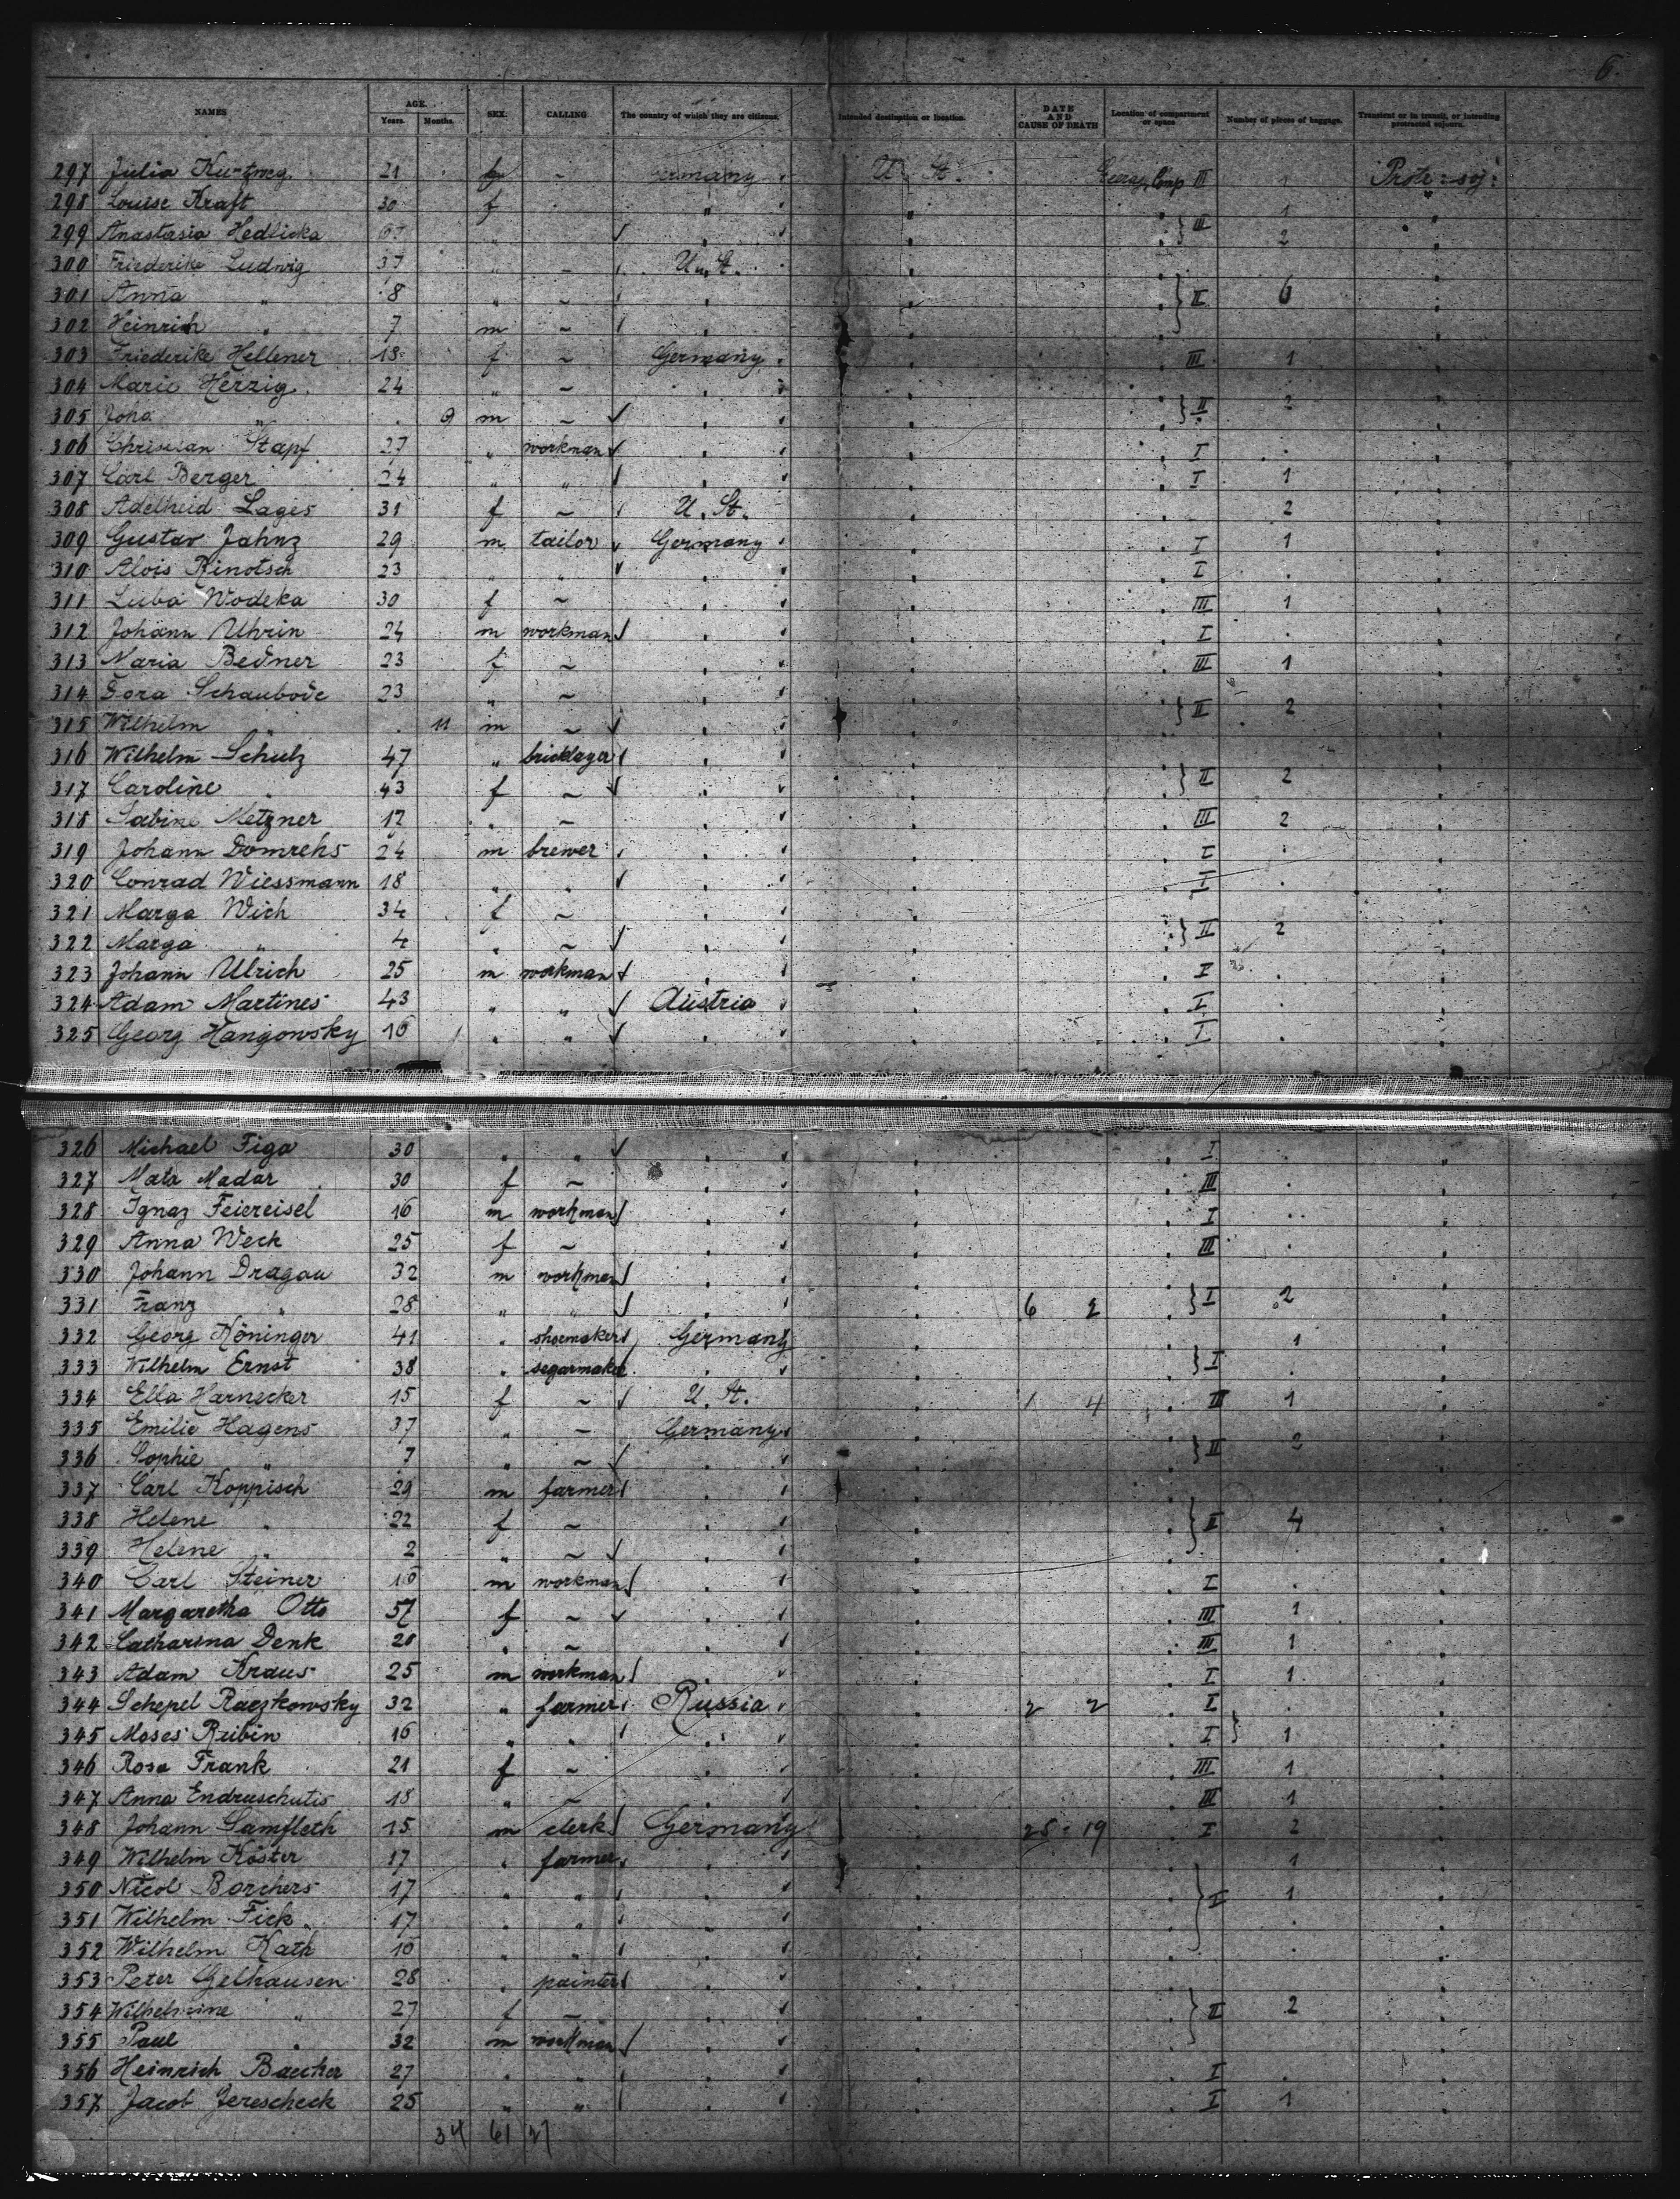 6.
NAMES AGE. Years. Months. SEX. CALLING The country of which they are citizens. Intended destination or location. DATE AND CAUSE OF DEATH Location of compartment or space Number of pieces of baggage. Transient or in transit, or intending protracted sojourn.
297 Julia 21 Germany U. St. Comp III 1
298 Louise Kraft 30 f " 1
299 Anastasia Hedlicka " } III 2
300 Friederike Ludwig 37 " ~ U. St.
301 Anna " 8 " ~ } II 6
302 Heinrich " 7 m ~
303 Friederike Hellener 18 f ~ Germany III 1
304 Marie Herzig 24 " ~ 2
305 " 9 m ~ } II
306 Stapf 27 " workman I
307 Carl Berger 24 " " I 1
308 Adelheid Lages 31 f ~ U. St. 2
309 Gustav Jahnz 29 m tailor Germany I 1
310 Alois Rinotsch 23 " " I
311 Luba Wodeka 30 f ~ III 1
312 Johann Uhrin 24 m workman I
313 Maria Bedner 23 f ~ III 1
314 Dora Schaubode 23 " ~
315 Wilhelm " 11 m ~ } II 2
316 Wilhelm Schulz 47 " bricklayer
317 Caroline " 43 f ~ } II 2
318 Sabine Metzner 17 " ~ III 2
319 Johann Domrehs 24 m brewer I
320 Conrad Wiessmann 18 " " I
321 Marga Wich 34 f ~
322 Marga " 4 " ~ } II 2
323 Johann Ulrich 25 m workman I
324 Adam Martines 43 " " Austria I
325 Georg Hangowsky 16 " " I
326 Michael Figa 30 " " I
327 Mata Madar 30 f ~ III
328 Ignaz Feiereisel 16 m workman I
329 Anna Weck 25 f ~ III
330 Johann Dragau 32 m workman
331 Franz " 28 " " 6 2 } I 2
332 Georg Köninger 41 " shoemaker Germany 1
333 Wilhelm Ernst 38 " segarmaker } I
334 Ella Harnecker 15 f ~ U. St. 1 4 III 1
335 Emilie Hagens 37 " ~ Germany
336 Sophie " 7 " ~ } II 2
337 Carl Koppisch 29 m farmer
338 Helene " 22 f ~ } II 4
339 Helene " 2 " ~
340 Carl Steiner 16 m workman I
341 Margaretha Otto 57 f ~ III 1
342 Catharina Denk 20 " ~ III 1
343 Adam Kraus 25 m workman I 1
344 Schepel Raczkowsky 32 " farmer Russia 2 2 I
345 Moses Rubin 16 " " I } 1
346 Rosa Frank 21 f ~ III 1
347 Anna Endruschutis 18 " ~ III 1
348 Johann Samfleth 15 m clerk Germany 25 19 I 2
349 Wilhelm Köster 17 " farmer 1
350 Nicol Borchers 17 " " } I 1
351 Wilhelm Fick 17 " "
352 Wilhelm Kath 16 " "
353 Peter Gelhausen 28 " painter
354 Wilhelmine " 27 f ~ } II 2
355 Paul " 32 m workman
356 Heinrich Baecker 27 " " I
357 Jacob Jerescheck 25 " " I 1
34 61 27